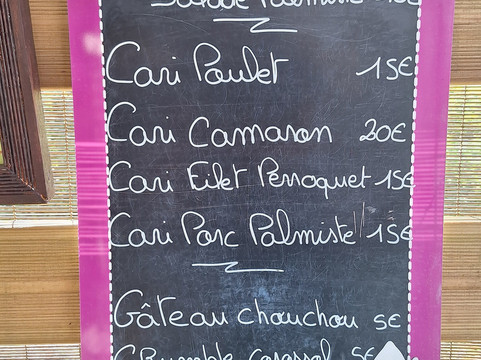 Salade Palmiste 15€
Cari Poulet 15€
Cari Camaron 20€
Cari Filet Perroquet 15€
Cari Porc Palmiste 15€
Gâteau chouchou 5€
Crumble corossol 5€